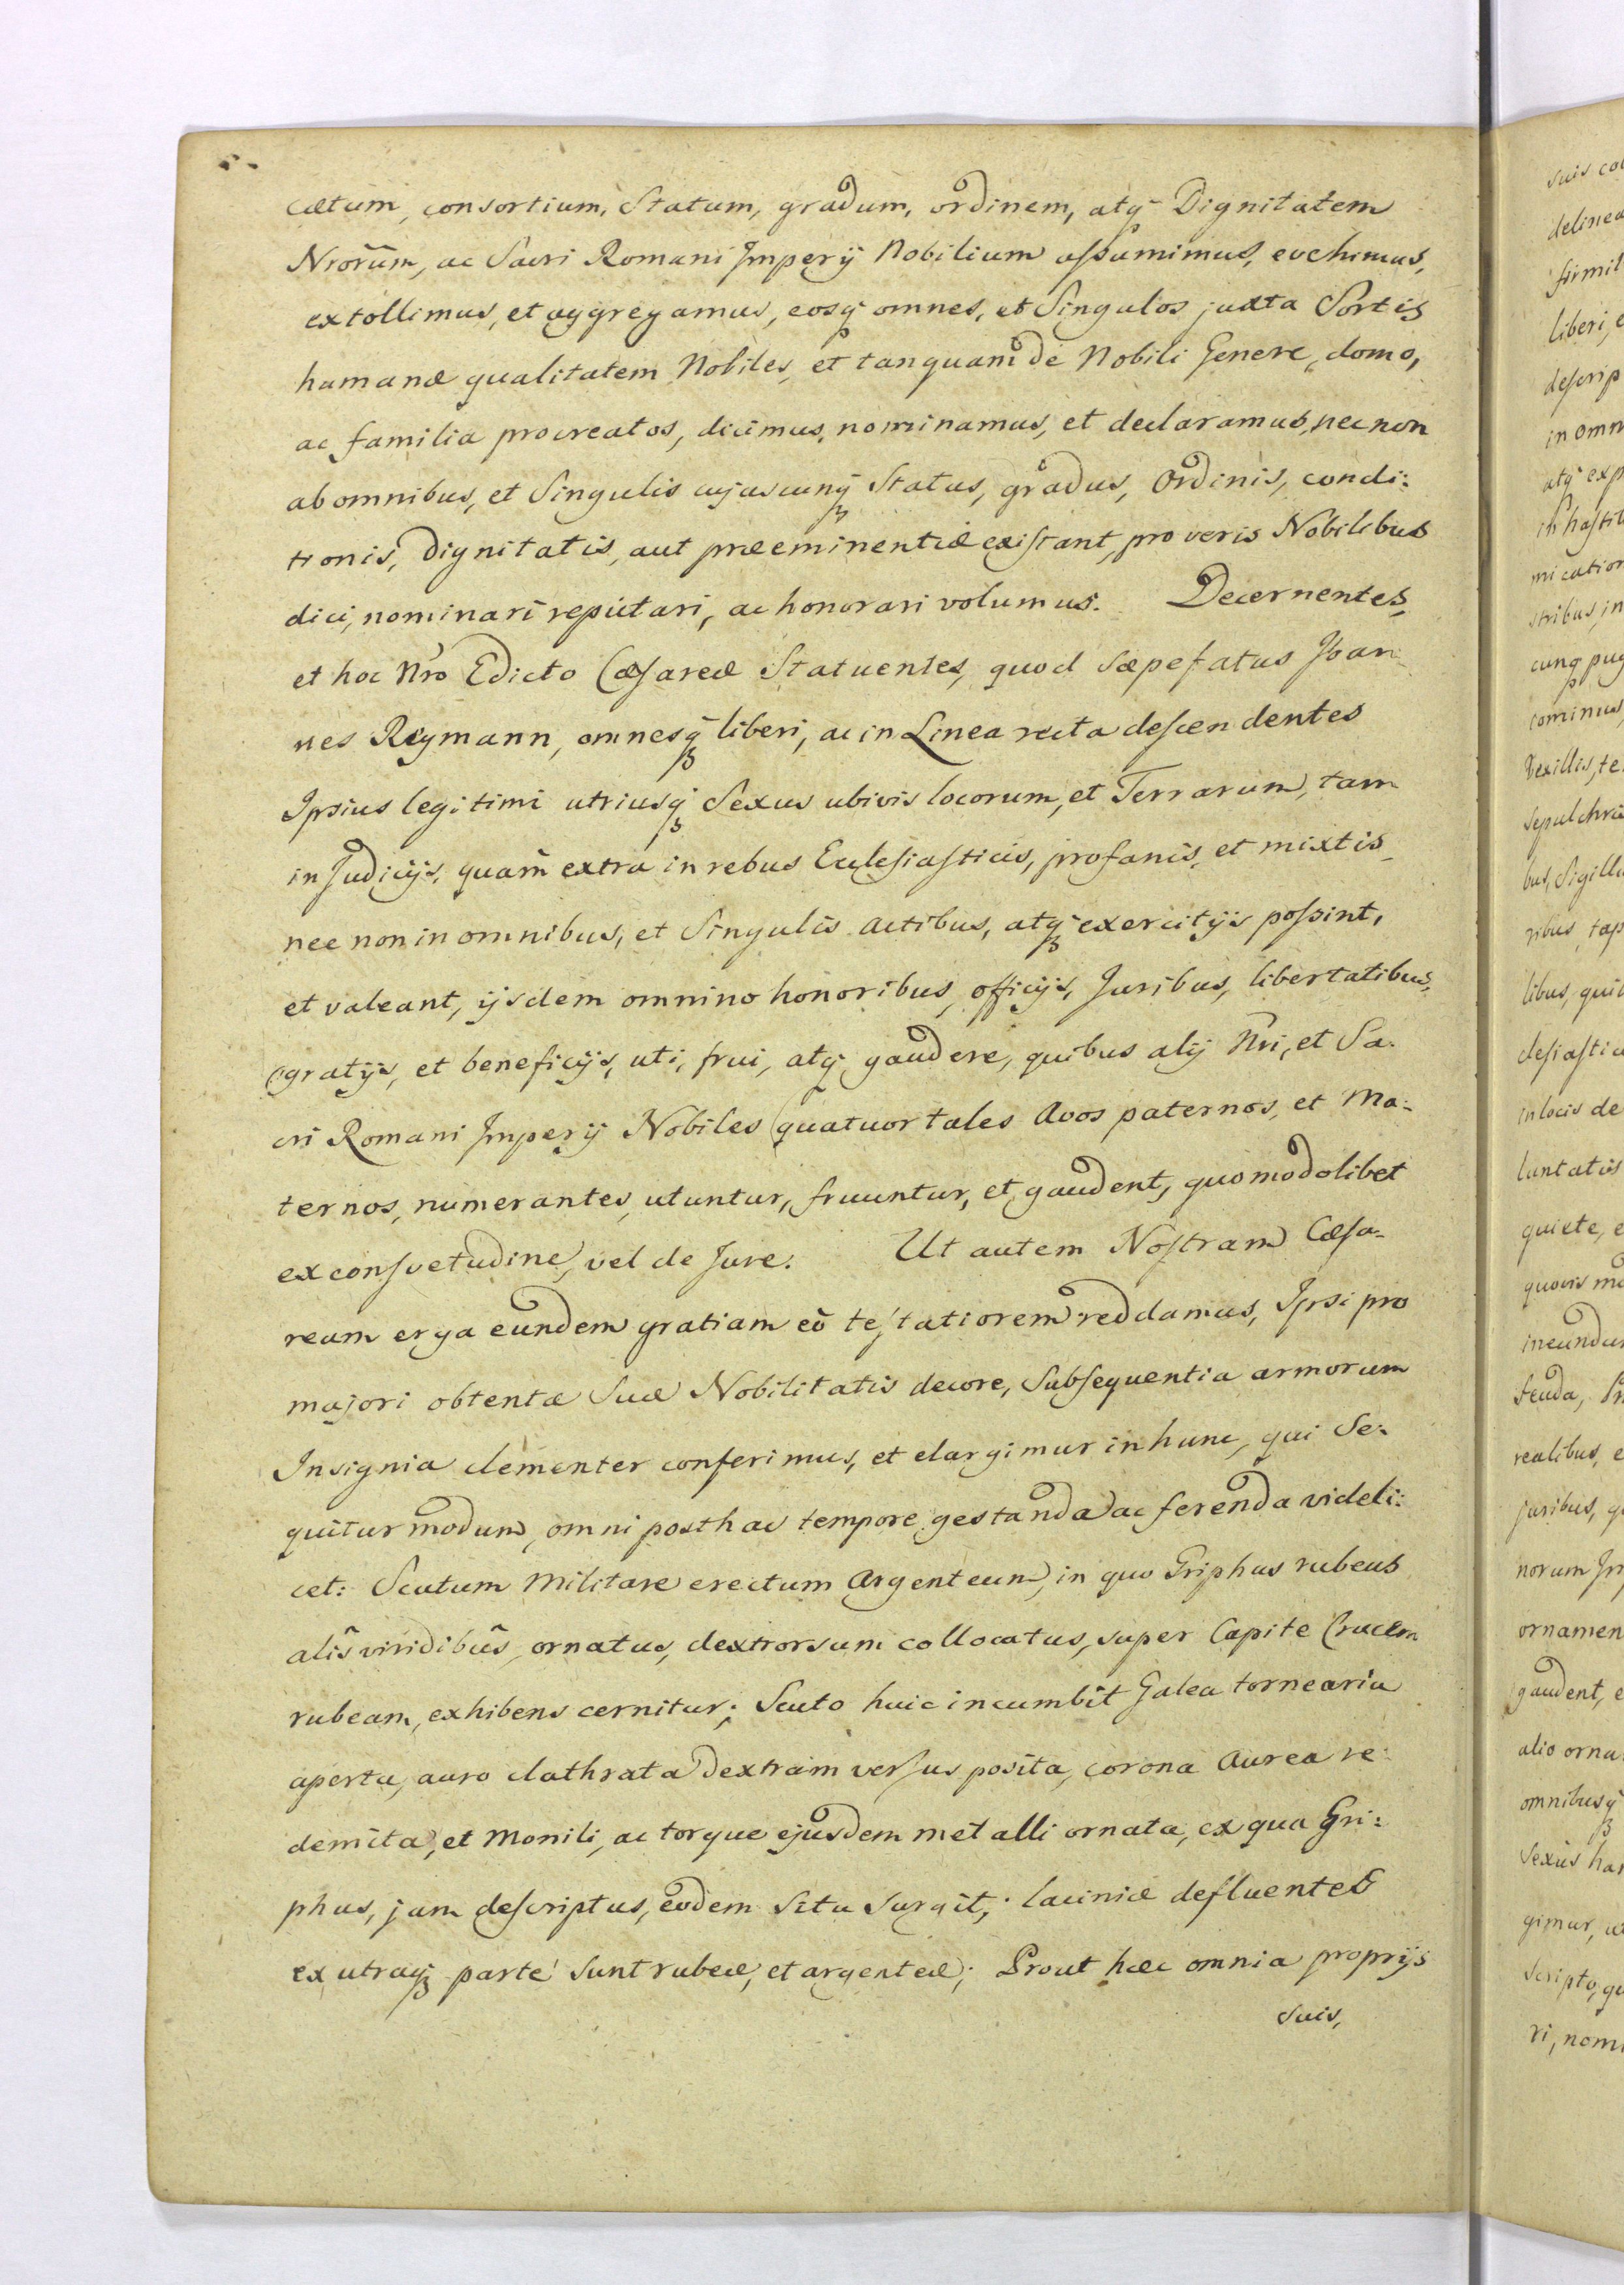 cætum, consortium, Statum, gradum, ordinem, atq̃ Dignitatem
Nrorũm, ac Sacri Romani Imperÿ Nobilium assumimus, evehimus,
extollimus, et aggregamus, eosq̃ omnes, et Singulos juxta Sortis
humanæ qualitatem Nobiles, et tanquam de Nobili Genere, domo,
ac familia procreatos, dicimus, nominamus, et declaramus, nec non
ab omnibus, et Singulis cujuscunq̃ Status, gradus, Ordinis, condi:
tionis, Dignitatis, aut præeminentiæ existant, pro veris Nobilibus
dici, nominari reputari, ac honorari volumus. Decernentes,
et hoc Nr̃o Edicto Cæsareæ Statuentes, quod sæpefatus Joan:
nes Reymann, omnesq̃ liberi, ac in Linea recta descendentes
Ipsius legitimi utriusq̃ Sexus ubivis locorum, et Terrarum, tam
in Judicÿs, quam extra in rebus Ecclesiasticis, profanis, et mixtis
nec non in omnibus, et Singulis actibus, atq̃ exercitÿs possint,
et valeant, ÿsdem omnino honoribus, officÿs, Juribus, libertatibus,
gratÿs, et beneficÿs, uti, frui, atq̃ gaudere, quibus alÿ Nr̃i, et Sa:
cri Romani Imperÿ Nobiles quatuor tales Avos paternos, et Ma:
ternos, numerantes, utuntur, fruuntur, et gaudent, quomodolibet
ex consvetudine, vel de Jure. Ut autem Nostram Cæsa-
ream erga eundem gratiam eò testatiorem reddamus, Ipsi pro
majori obtentæ Suæ Nobilitatis decore, Subsequentia armorum
Insignia clementer conferimus, et elargimur in hunc, qui Se:
quitur modum, omni posthac tempore gestanda ac ferenda videli:
cet: Scutum Militare erectum Argenteum, in quo Griphus rubeus
alis viridibus ornatus, dextrorsum collocatus, super Capite Crucem
rubeam, exhibens cernitur; Scuto huic incumbit Galea tornearia
aperta, auro clathrata dextram versus posita, corona Aurea re:
demita, et Monili, ac torque ejusdem metalli ornata, ex qua Gri:
phus, jam descriptus, eodem Situ Surgit; laciniæ defluentes
ex utraq̃ parte Sunt rubeæ, et argenteæ; Prout hæc omnia proprÿs
suis,
suis
delinea
firmit
liberi,
descrip
in omn
atq̃ exp
mication
stribus, in
cunq̃ pug
cominus
Vexillis, te
Sepulchri
bus, Sigill
libus, qui
clesiastic
in locis de
luntatis
quiete, e
quovis mo
ineundu
feuda,
realibus, e
juribus,
norum
ornamen
gaudent, e
alio orna
omnibusq̃
Sexus ha
gimur,
Scripto,
ri, nomi